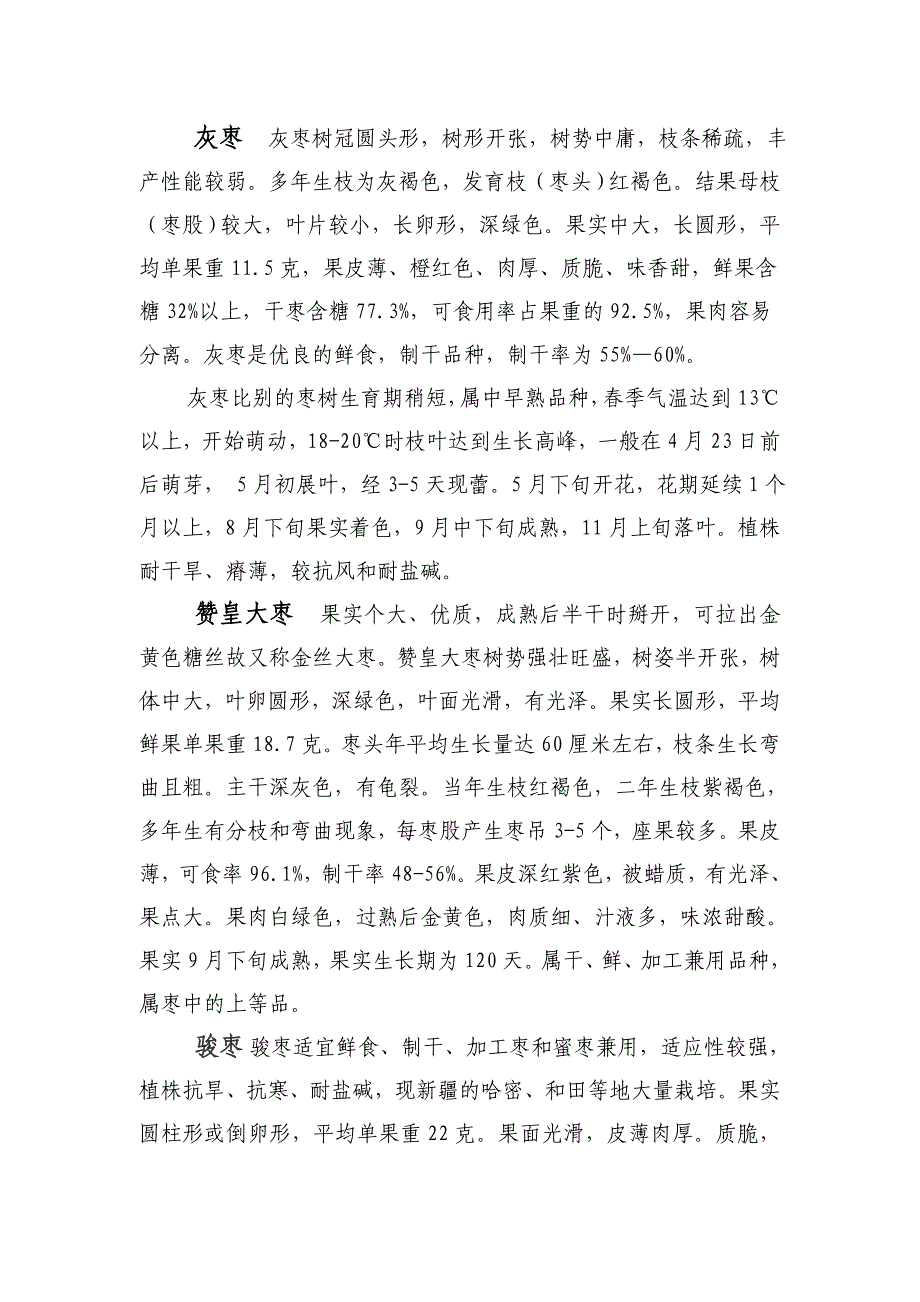 灰枣　灰枣树冠圆头形，树形开张，树势中庸，枝条稀疏，丰
产性能较弱。多年生枝为灰褐色，发育枝（枣头）红褐色。结果母枝
（枣股）较大，叶片较小，长卵形，深绿色。果实中大，长圆形，平
均单果重 11.5 克，果皮薄、橙红色、肉厚、质脆、味香甜，鲜果含
糖 32%以上，干枣含糖 77.3%，可食用率占果重的 92.5%，果肉容易
分离。灰枣是优良的鲜食，制干品种，制干率为 55%—60%。
灰枣比别的枣树生育期稍短，属中早熟品种，春季气温达到 13℃
以上，开始萌动，18-20℃时枝叶达到生长高峰，一般在 4 月 23 日前
后萌芽， 5 月初展叶，经 3-5 天现蕾。5 月下旬开花，花期延续 1 个
月以上，8 月下旬果实着色，9 月中下旬成熟，11 月上旬落叶。植株
耐干旱、瘠薄，较抗风和耐盐碱。
赞皇大枣　果实个大、优质，成熟后半干时掰开，可拉出金
黄色糖丝故又称金丝大枣。赞皇大枣树势强壮旺盛，树姿半开张，树
体中大，叶卵圆形，深绿色，叶面光滑，有光泽。果实长圆形，平均
鲜果单果重 18.7 克。枣头年平均生长量达 60 厘米左右，枝条生长弯
曲且粗。主干深灰色，有龟裂。当年生枝红褐色，二年生枝紫褐色，
多年生有分枝和弯曲现象，每枣股产生枣吊 3-5 个，座果较多。果皮
薄，可食率 96.1%，制干率 48-56%。果皮深红紫色，被蜡质，有光泽、
果点大。果肉白绿色，过熟后金黄色，肉质细、汁液多，味浓甜酸。
果实 9 月下旬成熟，果实生长期为 120 天。属干、鲜、加工兼用品种，
属枣中的上等品。
骏枣 骏枣适宜鲜食、制干、加工枣和蜜枣兼用，适应性较强，
植株抗旱、抗寒、耐盐碱，现新疆的哈密、和田等地大量栽培。果实
圆柱形或倒卵形，平均单果重 22 克。果面光滑，皮薄肉厚。质脆，